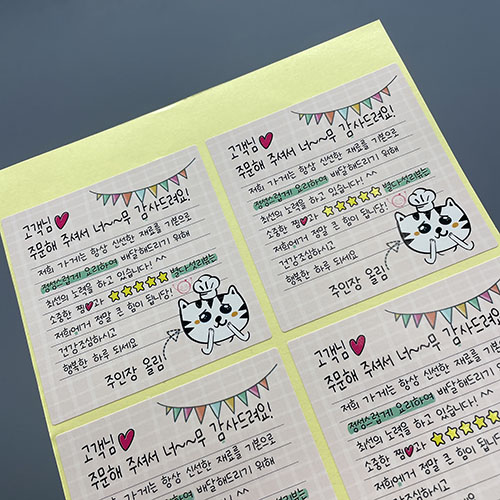 고객님
주문해 주셔서 너~~무 감사드려요!
저희 가게는 항상 신선한 재료를 기본으로
정성스럽게 요리하여 배달해드리기 위해
최선의 노력을 하고 있습니다! ^^
소중한 찜♥과 ★★★★★ 별다섯리뷰는
저희에게 정말 큰 힘이 됩니당!
건강조심하시고
행복한 하루 되세요
주인장 올림!
고객님
주문해 주셔서 너~~무 감사드려요!
저희 가게는 항상 신선한 재료를 기본으로
정성스럽게 요리하여 배달해드리기 위해
최선의 노력을 하고 있습니다! ^^
소중한 찜♥과 ★★★★★ 별다섯리뷰는
저희에게 정말 큰 힘이 됩니당!
건강조심하시고
행복한 하루 되세요
주인장 올림!
고객님
주문해 주셔서 너~~무 감사드려요!
저희 가게는 항상 신선한 재료를 기본으로
정성스럽게 요리하여 배달해드리기 위해
고객님
주문해 주셔서 너~~무 감사드려요!
저희 가게는 항상 신선한 재료를
정성스럽게 요리하여 배달해드리기
최선의 노력을 하고 있습니다! ^^
소중한 찜♥과 ★★★★★
저희에게 정말 큰 힘이
건강조심하시고